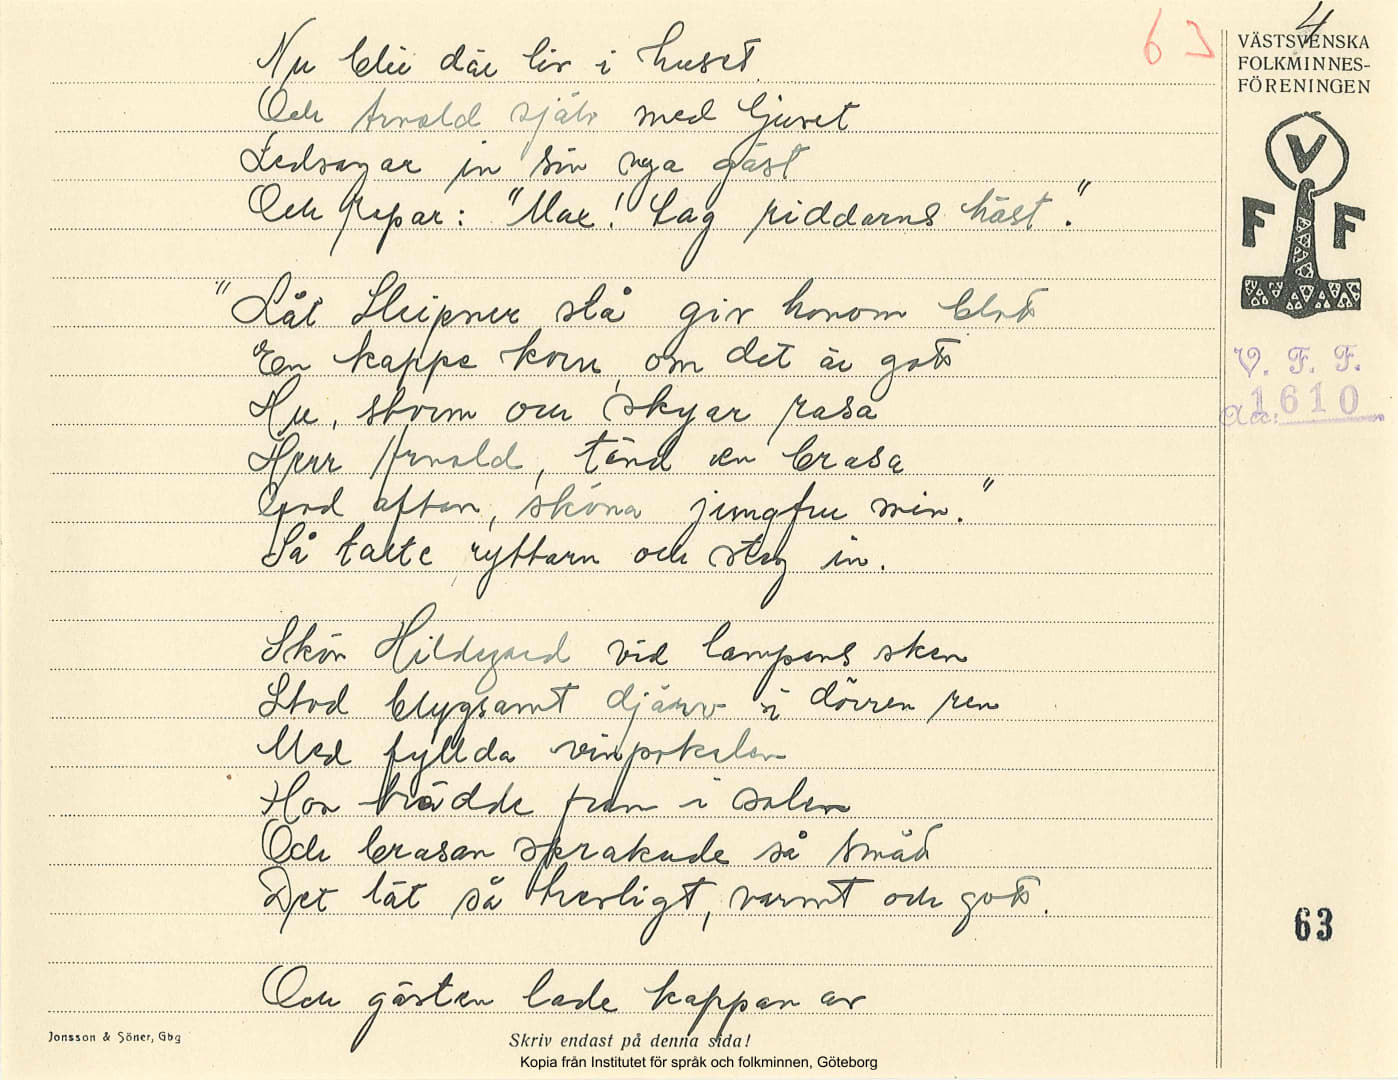 63
4
VÄSTSVENSKA
FOLKMINNES-
FÖRENINGEN
V
F F
V. F. F.
Acc: 1610
Nu blir där liv i huset
Och Arnold själv med ljuset
Ledsagar in sin nya gäst
Och ropar: "Max! tag riddarns häst."
"Låt Sleipner stå giv honom blott
En kappe korn, om det är gott
Hu, storm och skyar rasa
Herr Arnold, tänd en brasa
God afton, sköna jungfru min."
Så talte ryttarn och steg in.
Skön Hildegard vid lampens sken
Stod blygsamt djärv i dörren ren
Med fyllda vinpokalen
Hon trädde fram i salen
Och brasan sprakade så smått
Det lät så herligt, varmt och gott.
Och gästen lade kappan av
63
Jonsson & Söner, Gbg
Skriv endast på denna sida!
Kopia från Institutet för språk och folkminnen, Göteborg